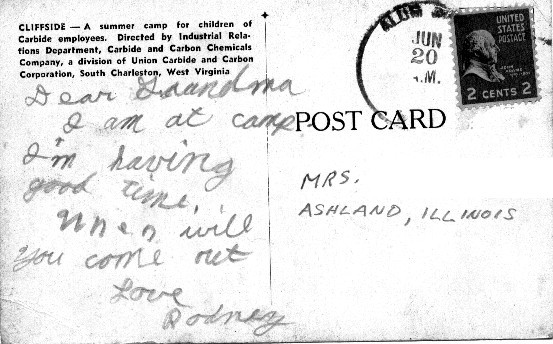 CLIFFSIDE — A summer camp for children of
Carbide employees. Directed by Industrial Rela-
tions Department, Carbide and Carbon Chemicals
Company, a division of Union Carbide and Carbon
Corporation, South Charleston, West Virginia
Dear Grandma
I am at camp.
I'm having
good time.
When will
you come out
Love
Rodney
POST CARD
MRS.
ASHLAND, ILLINOIS
JUN
20
.M.
UNITED
STATES
POSTAGE
2 CENTS 2